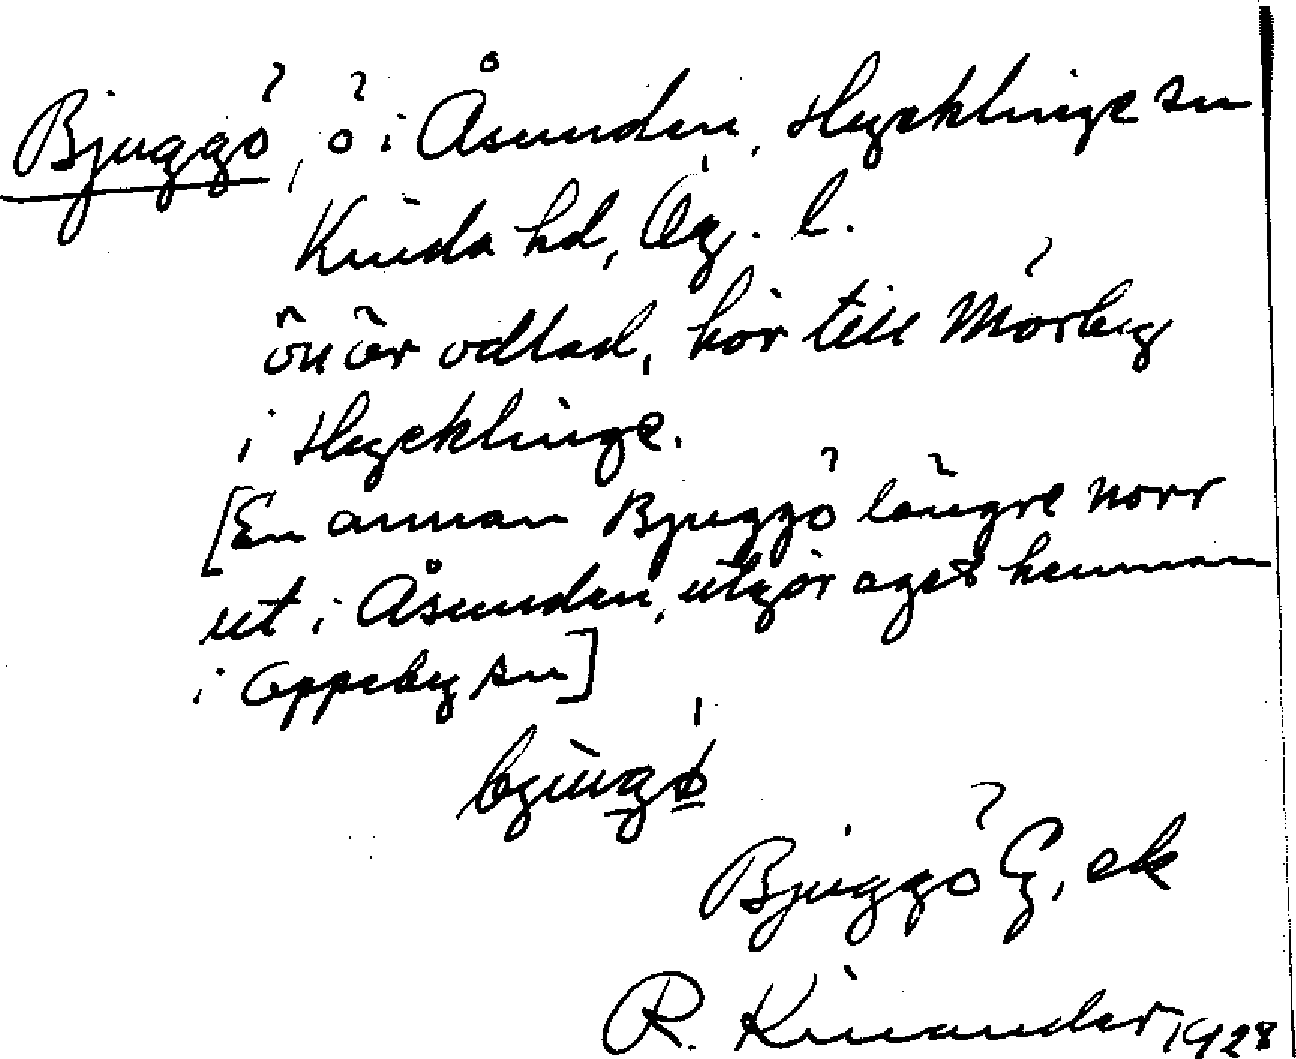 Bjuggö, ö i Åsunden, Hycklinge sn
Kinda hd, Ög. l.
Ön är odlad, hör till Mörby
i Hycklinge.
[En annan Bjuggö längre norr
ut i Åsunden, utgör eget hemman
i Oppeby sn]
Bjuggö G, ek
R. Kinander, 1928